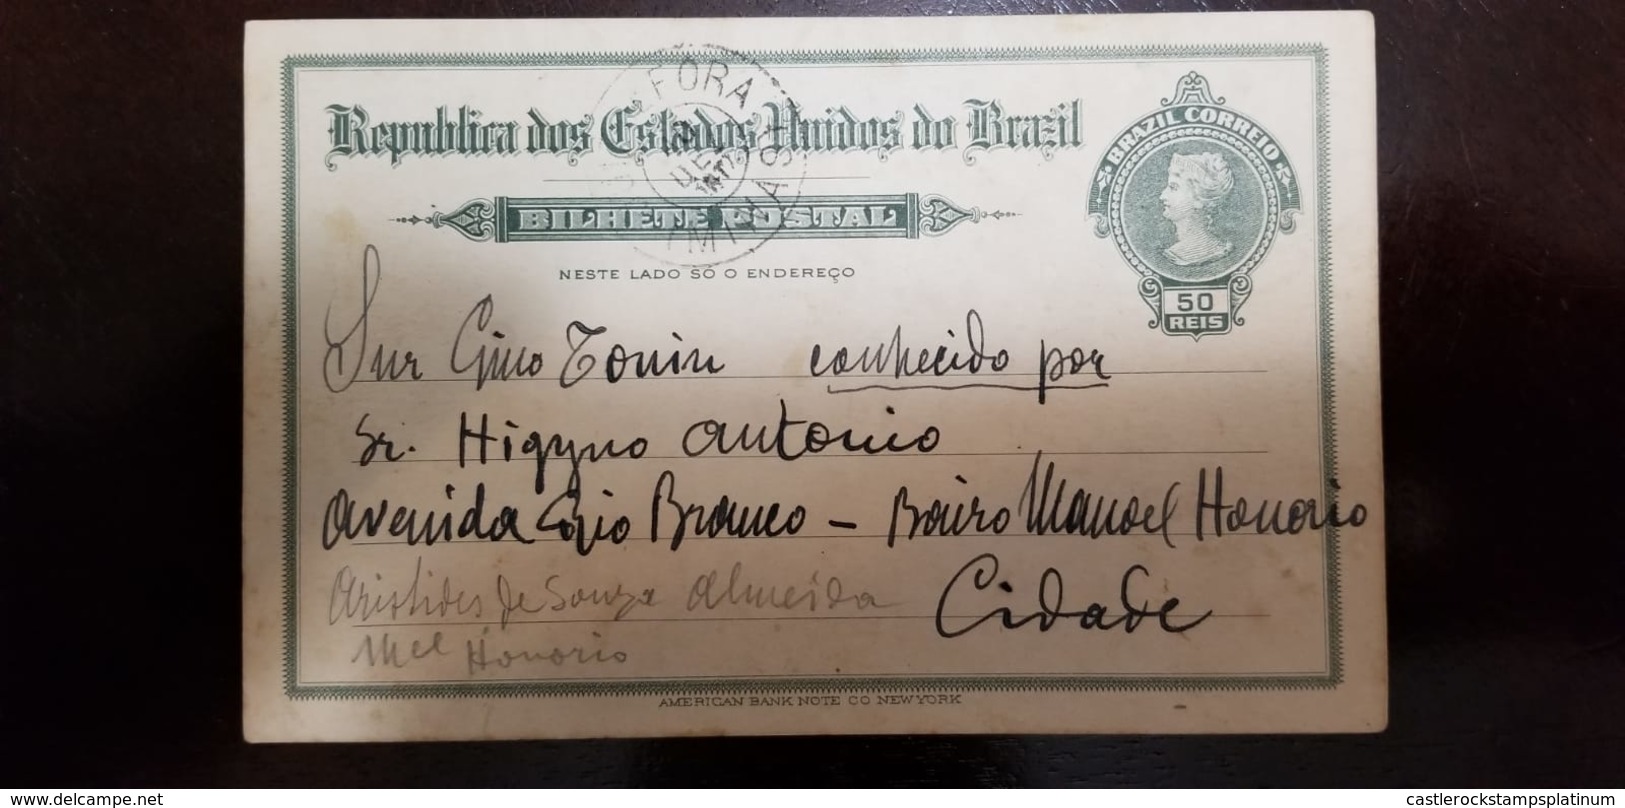 FORA
Republica dos Estados Unidos do Brazil
BRAZIL CORREIO
BILHETE POSTAL
NESTE LADO SÓ O ENDEREÇO
50
REIS
Snr Gino Tonin conhecido por
Sr. Higyno Antonio
Avenida Rio Branco - Bairro Manoel Honorio
Aristides de Souza Almeida
Cidade
Mel Honorio
AMERICAN BANK NOTE CO NEW YORK
delcampe.net
castlerockstampsplatinum